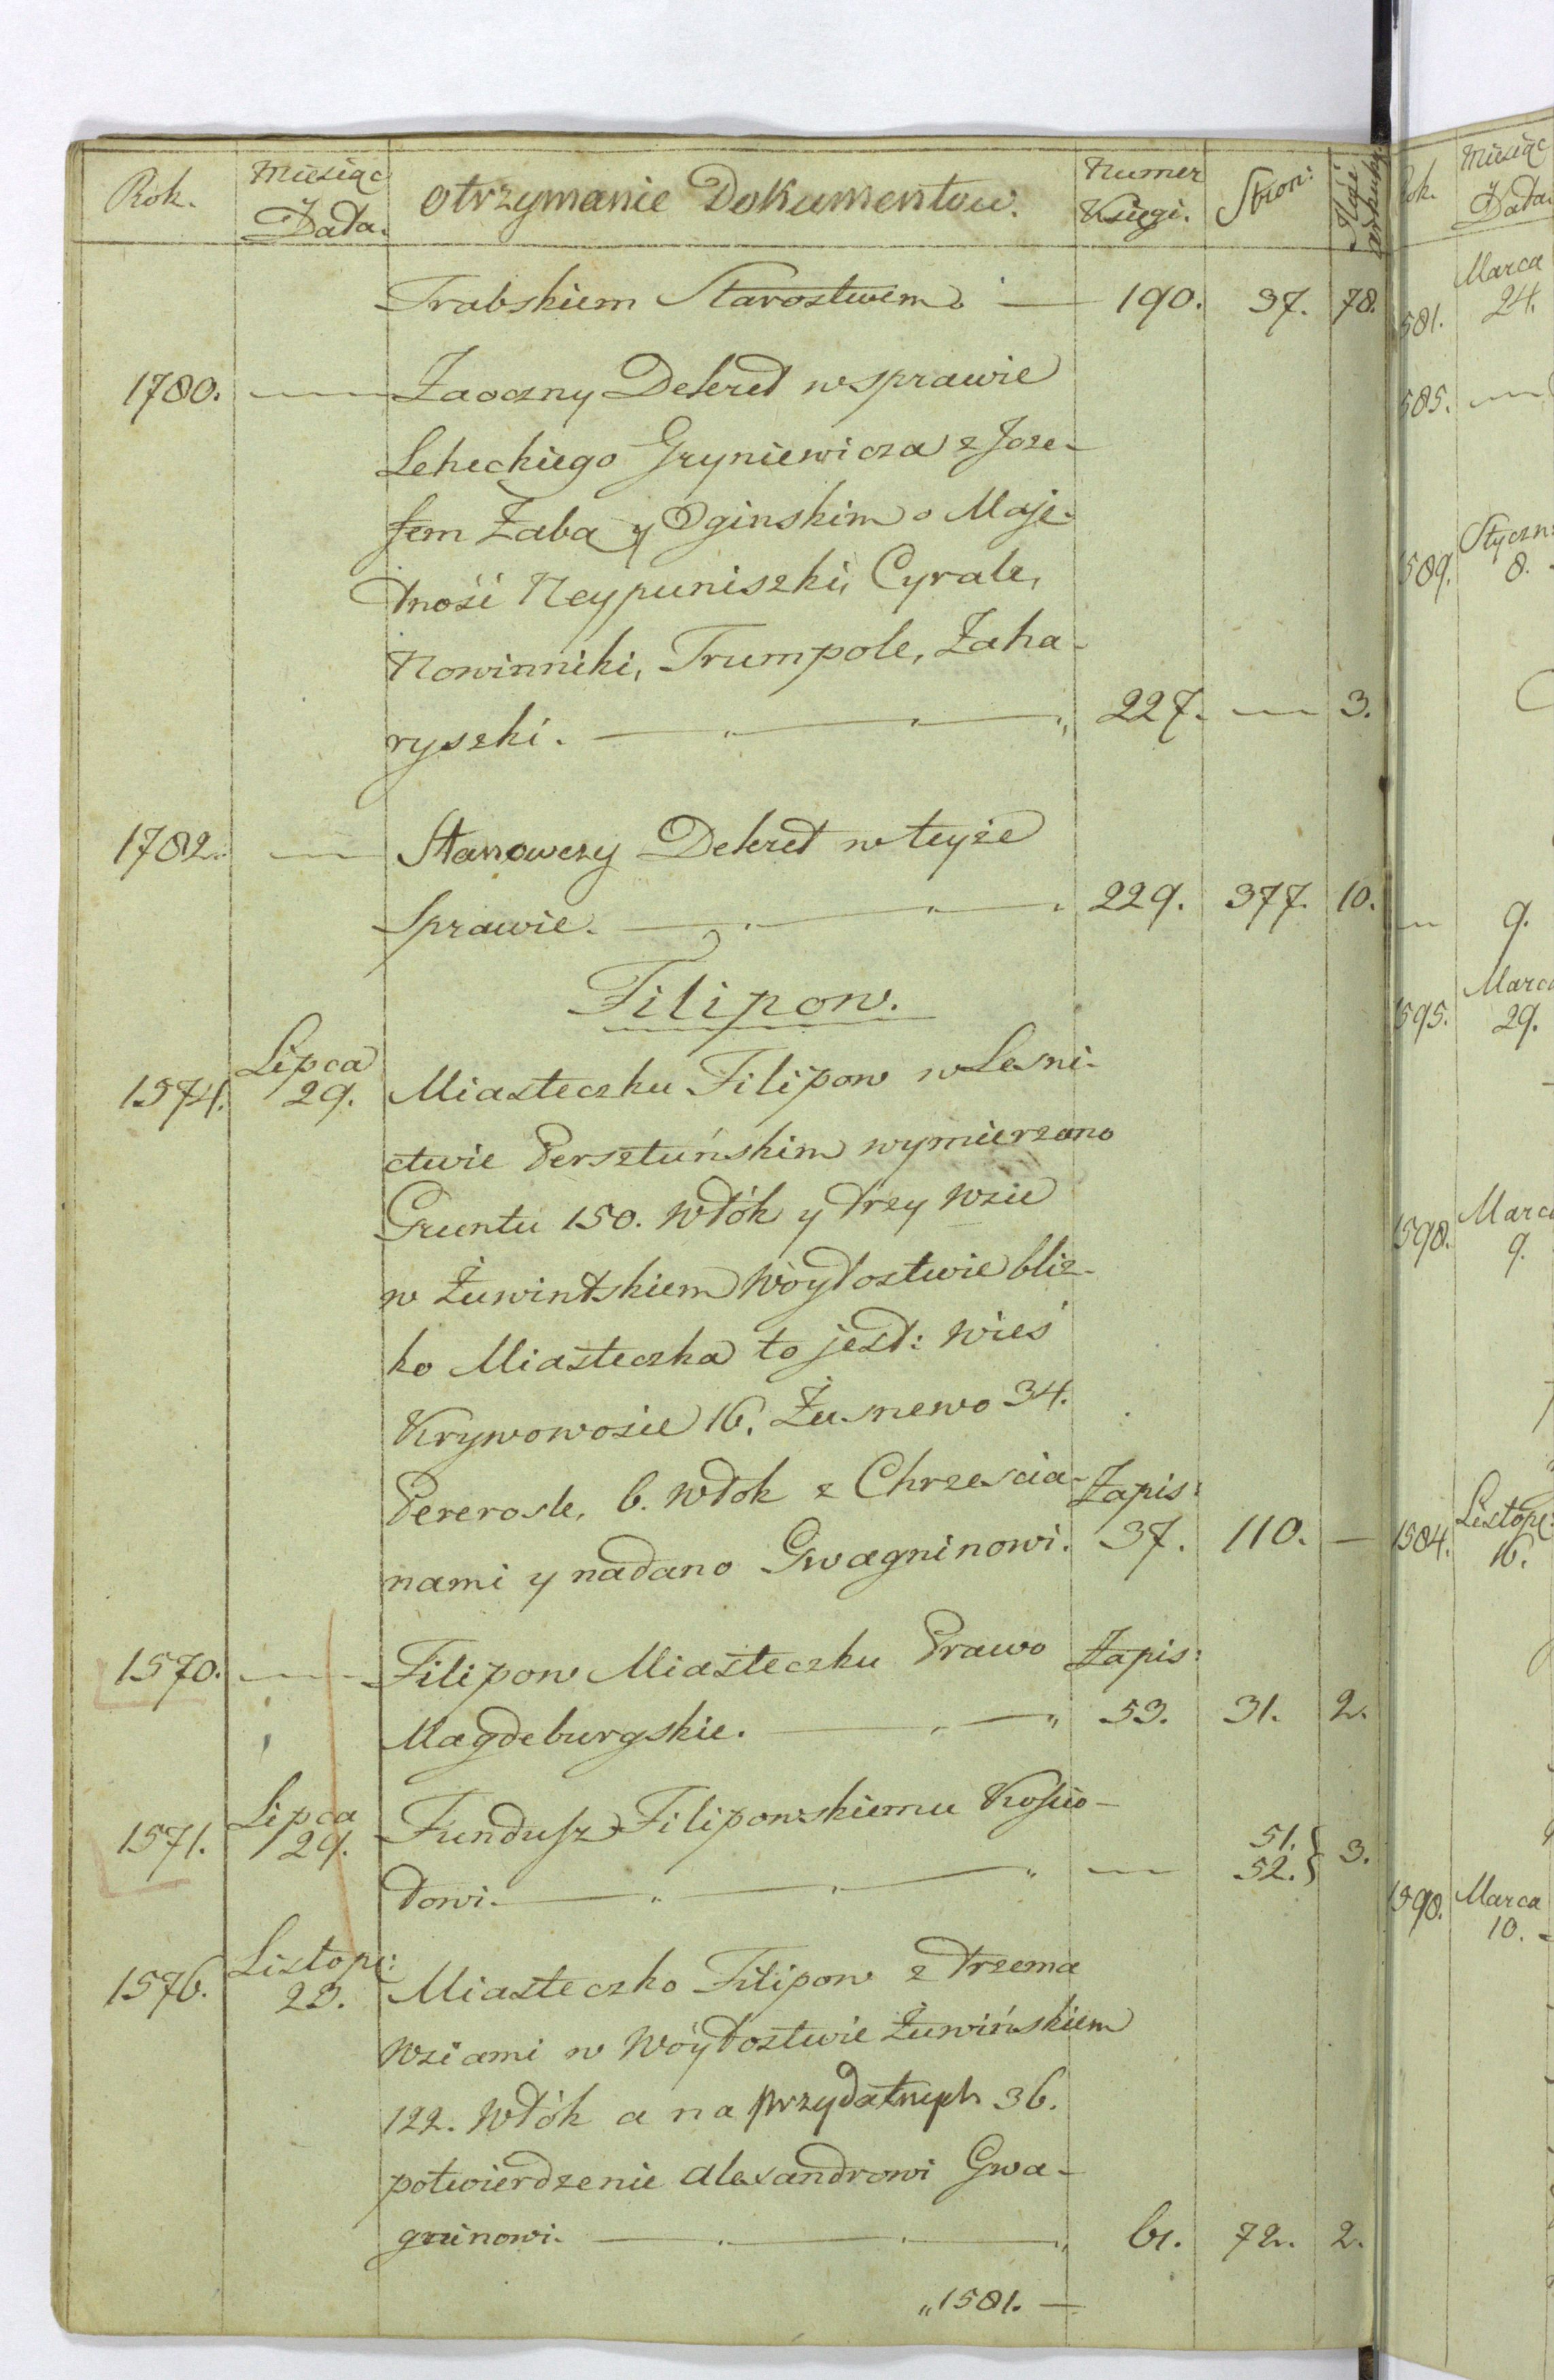 Rok. Miesiąc Data. Otrzymanie Dokumentow. Numer Księgi. Stron: Ilość arkuszy
Trabskiem Starostwem. — 190. 37. 78.
1780. — Zaoczny Dekret w sprawie
Leheckiego Gryniewicza z Joze-
fem Żaba y Oginskim o Maję-
tność Neypuniszki, Cyrale,
Nowinniki, Trumpole, Zaha-
ryszki. — 227. — 3.
1782. — Stanowczy Dekret w teyże
Sprawie. — 229. 377. 10.
Filipow.
1574. Lipca 29. Miasteczku Filipow w Lesni-
ctwie Persztuńskim wymierzono
Gruntu 150. Włók y trzy Wsie
w Żuwintskiem Wòytostwie bliz-
ko Miasteczka to jest: Wieś
Krywowosie 16. Żusnewo 34.
Pererosle, 6. Włok z Chrzescia-
nami y nadano Gwagninowi. Zapis: 37. 110. —
1570. — Filipow Miasteczku Prawo
Magdeburgskie. — Zapis: 53. 31. 2.
1571. Lipca 29. Fundusz Filipowskiemu Kościo-
łowi. — 51. 52. } 3.
1576. Listop: 23. Miasteczko Filipow z trzema
Wsiami w Wóytostwie Żuwińskiem
122. Włók a na przydatnych 36.
potwierdzenie Alexandrowi Gwa-
gninowi. — 61. 72. 2.
„1581. —
Rok. Miesiąc Data.
581. Marca 24.
585. —
589. Styczn: 8.
— 9.
595. Marca 29.
1598. Marca 9.
1584. Listop: 16.
1590. Marca 10.